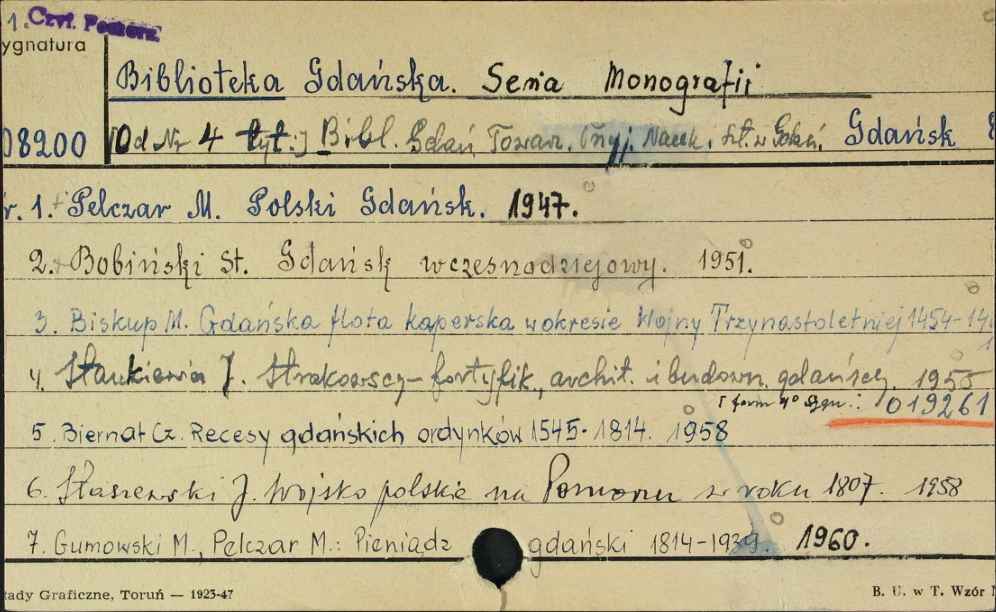 1. Czyt. Pomorz.
ygnatura
Biblioteka Gdańska. Seria Monografii
08200 [Od Nr 4 tyt:] Bibl. Gdań. Towarz. Przyj. Nauk. i Szt. w Gdań. Gdańsk
r. 1. Pelczar M. Polski Gdańsk. 1947.
2. Bobiński St. Gdańsk wczesnodziejowy. 1951.
3. Biskup M. Gdańska flota kaperska w okresie Wojny Trzynastoletniej 1454-14
4. Stankiewicz J. Strakowscy - fortyfik., archit. i budown. gdańscy. 1955
[form 4° sygn.: 019261
5. Biernat Cz. Recesy gdańskich ordynków 1545-1814. 1958
6. Staszewski J. Wojsko polskie na Pomorzu w roku 1807. 1958
7. Gumowski M., Pelczar M.: Pieniądz gdański 1814-1939. 1960.
łady Graficzne, Toruń — 1923-47 B. U. w T. Wzór